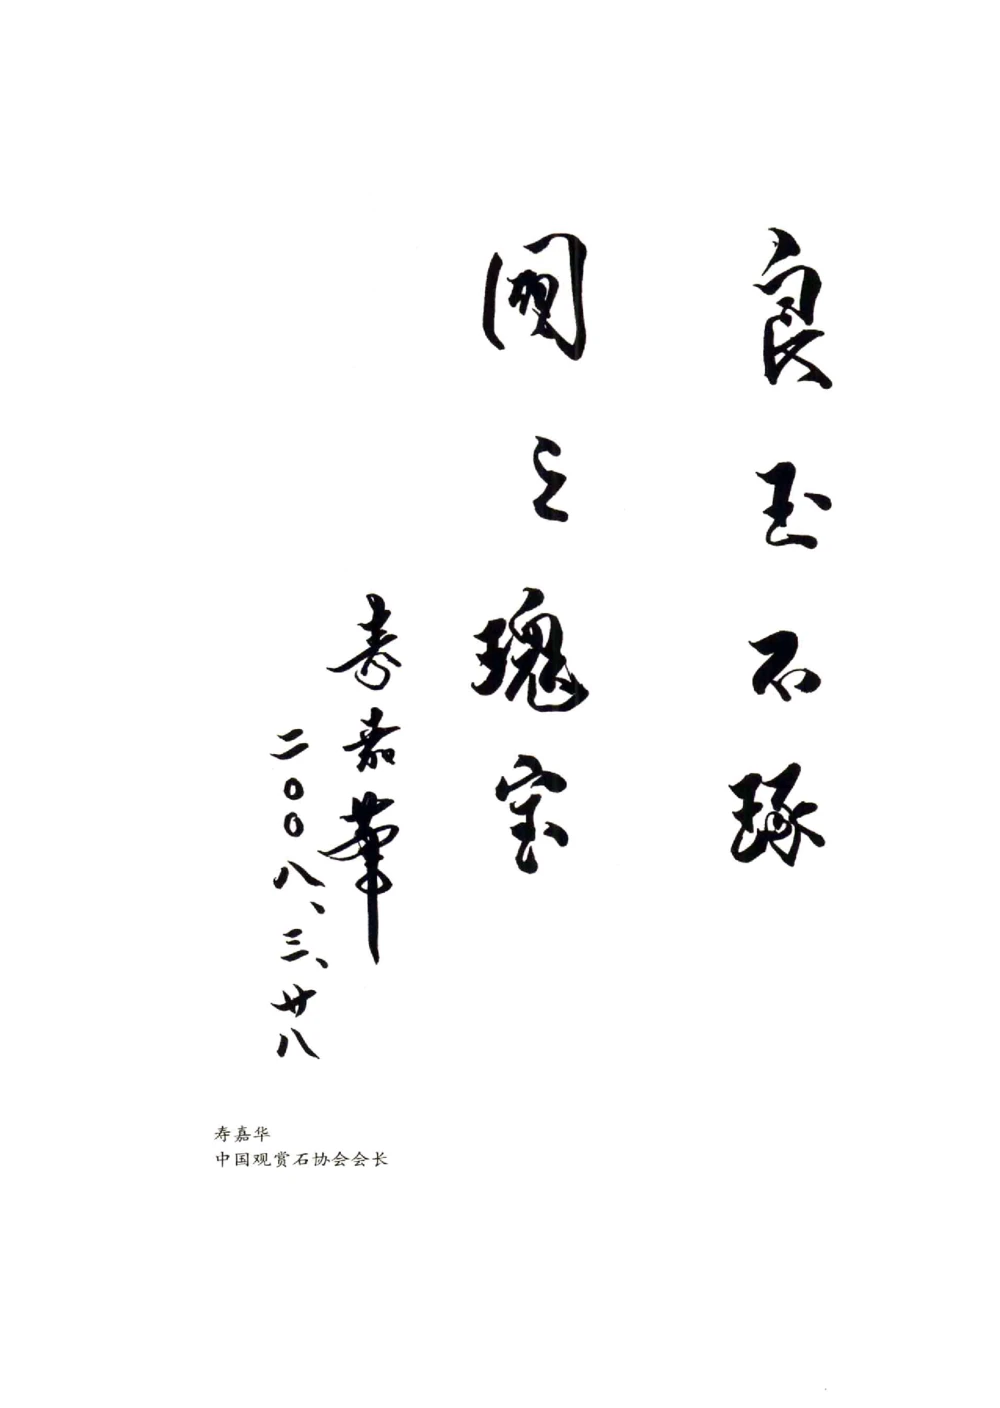 良玉不琢
國之瑰宝
寿嘉華
二〇〇八、三、廿八
寿嘉华
中国观赏石协会会长